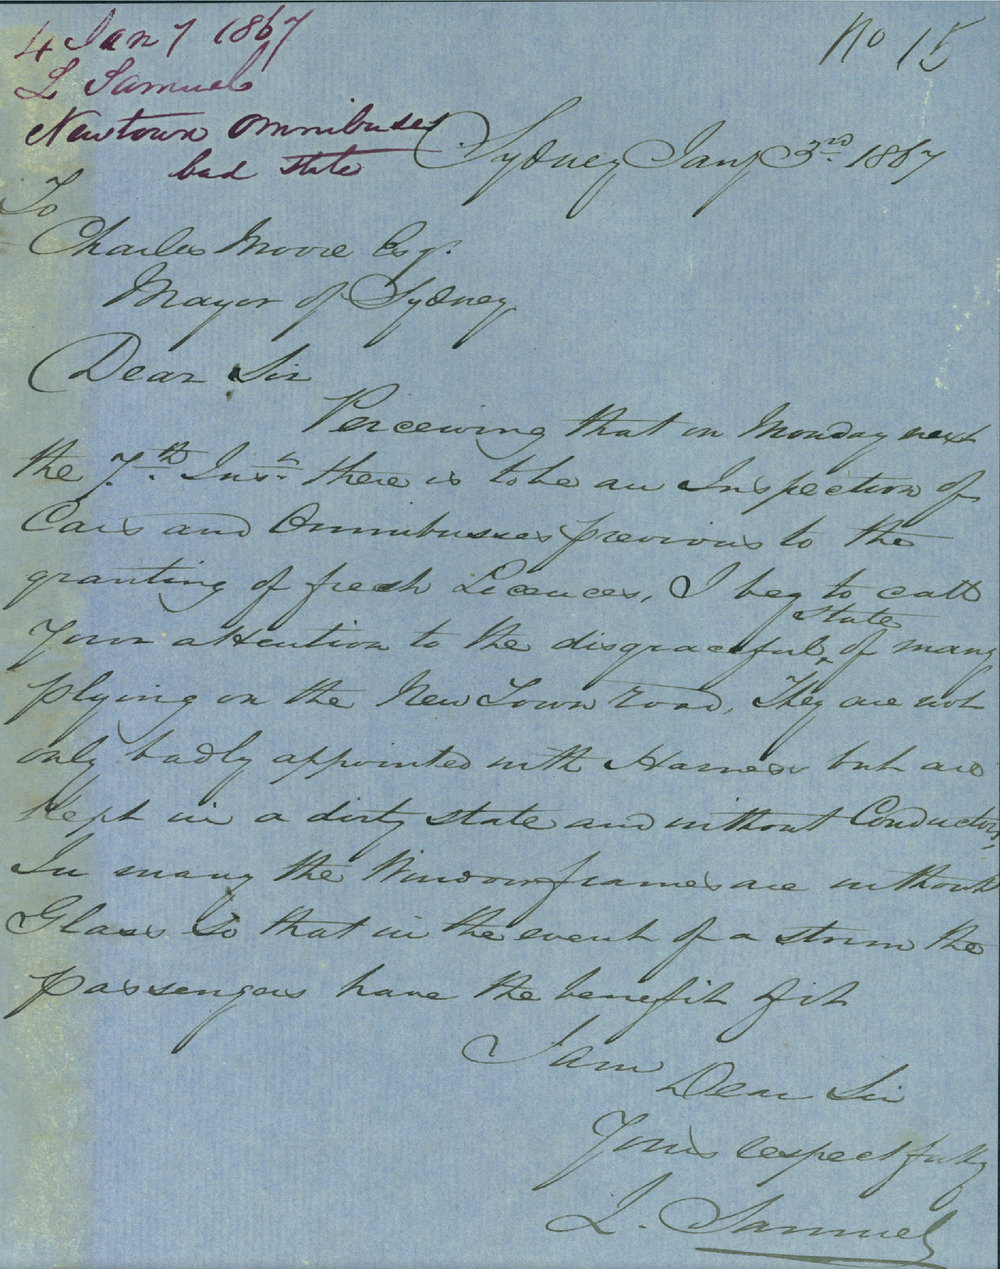 4 Jany 1867
L Samuel
Newtown Omnibuses
bad state
No 15
Sydney Jany 3rd 1867
To
Charles Moore Esqr.
Mayor of Sydney
Dear Sir
Perceiving that on Monday next
the 7th Inst there is to be an Inspection of
Cars and Omnibusses previous to the
granting of fresh Licences, I beg to call
Your attention to the disgraceful state of many
plying on the New Town road, They are not
only badly appointed with Harness but are
kept in a dirty state and without Conductors,
In many the Window frames are without
Glass so that in the event of a storm the
passengers have the benefit of it
I am
Dear Sir
Yours respectfully
L. Samuel